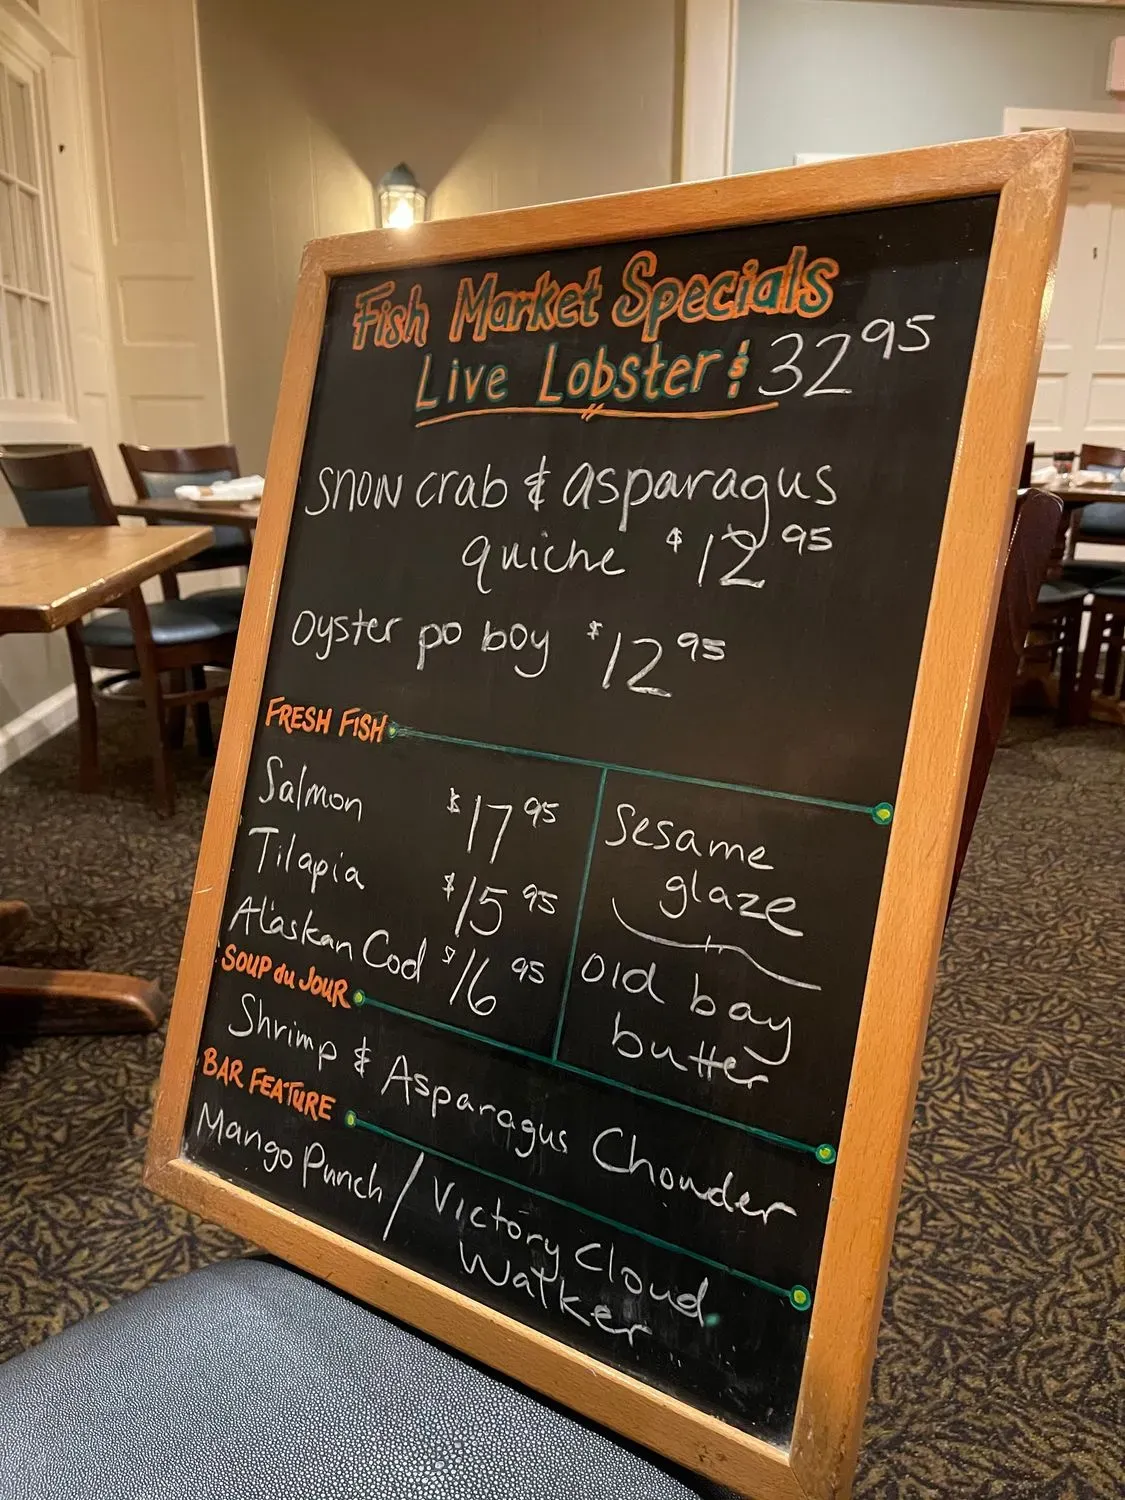 Fish Market Specials
Live Lobster $ 32 95
Snow crab & asparagus
quiche $12 95
Oyster po boy $12 95
FRESH FISH
Salmon $17 95
Tilapia $15 95
Alaskan Cod $16 95
Sesame
glaze
Old bay
butter
SOUP du JOUR
Shrimp & Asparagus Chowder
BAR FEATURE
Mango Punch / Victory Cloud
Walker